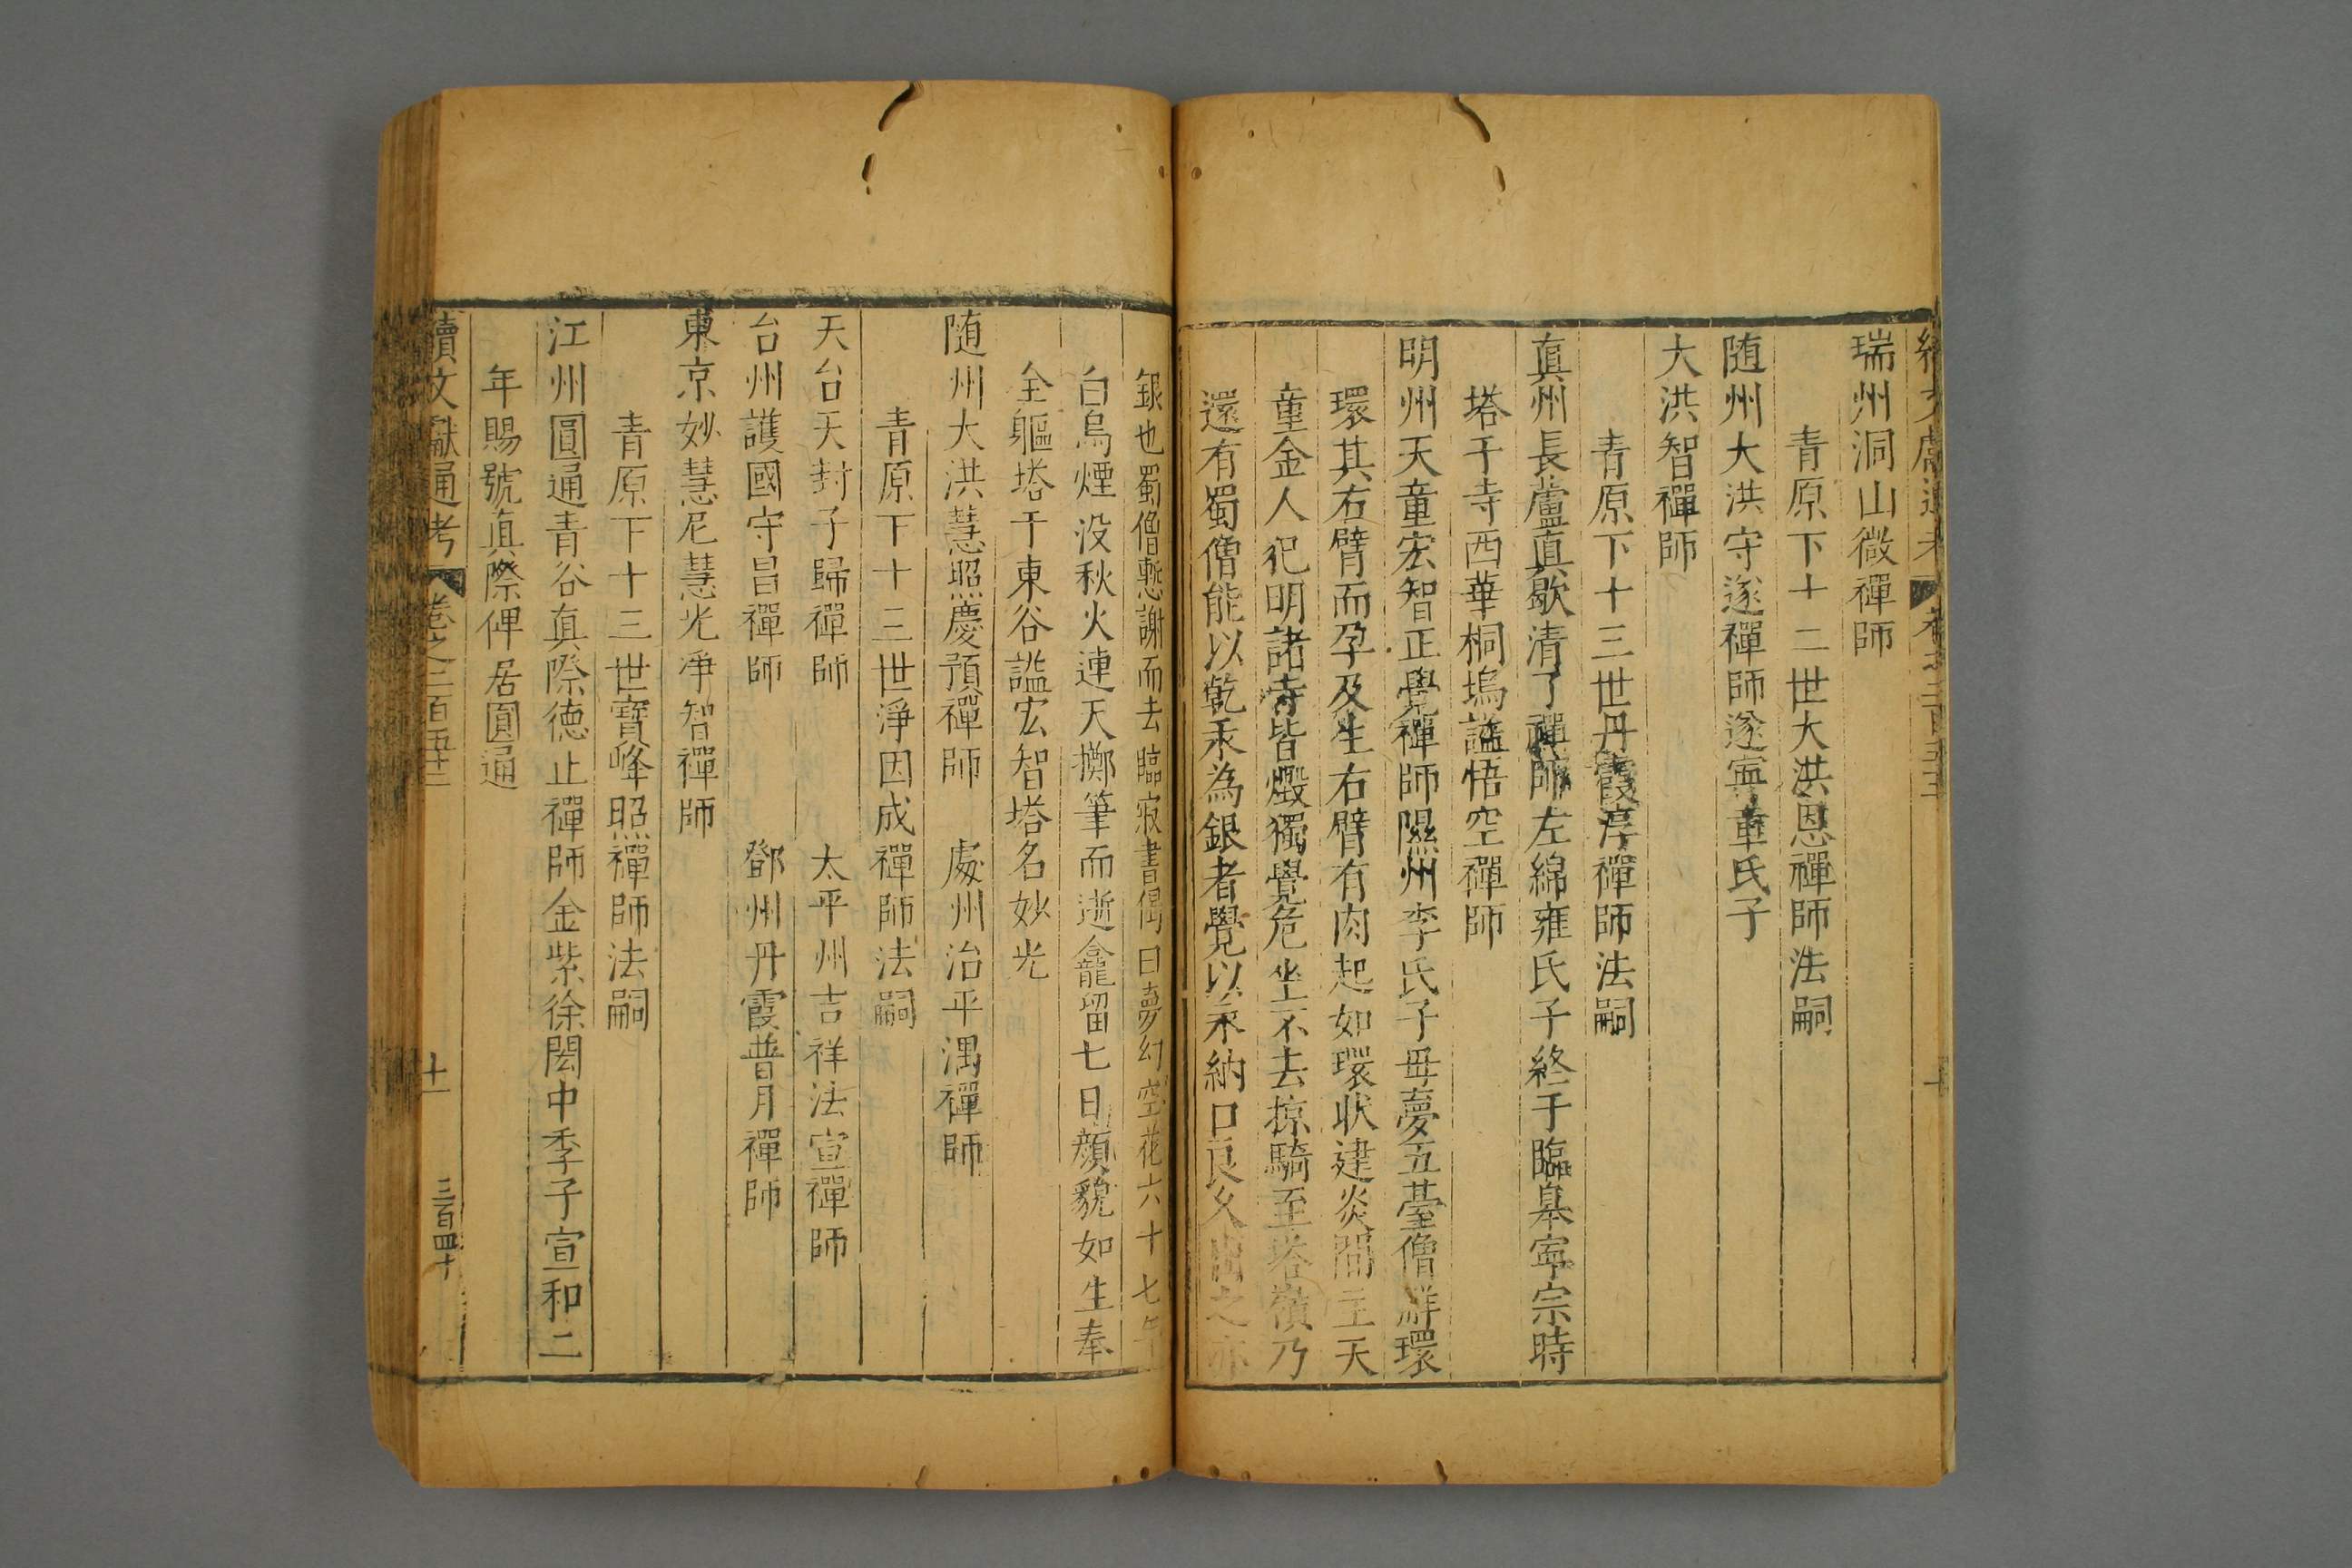 瑞州洞山微禪師
青原下十二世大洪恩禪師法嗣
随州大洪守遂禪師遂寧章氏子
大洪智禪師
青原下十三世丹霞淳禪師法嗣
真州長蘆真歇清了禪師左綿雍氏子終于臨皋寧宗時
塔于寺西華桐塢謚悟空禪師
明州天童宏智正覺禪師隰州李氏子母夢五臺僧觧環
環其右臂而孕及生右臂有肉起如環状建炎間主天
童金人犯明諸寺皆燬獨覺危坐不去掠騎至塔嶺乃
還有蜀僧能以乾汞為銀者覺以汞納口良久
銀也蜀僧慙謝而去臨寂書偈曰夢幻空花六十七年
白鳥煙没秋火連天擲筆而逝龕留七日顔貌如生奉
全軀塔于東谷謚宏智塔名妙光
随州大洪慧照慶預禪師　處州治平湡禪師
青原下十三世淨因成禪師法嗣
天台天封子歸禪師　太平州吉祥法宣禪師
台州護國守昌禪師　鄧州丹霞普月禪師
東京妙慧尼慧光凈智禪師
青原下十三世寶峰照禪師法嗣
江州圓通青谷真際德止禪師金紫徐閎中季子宣和二
年賜號真際俾居圓通
續文獻通考　卷之二百五十二　十一　三百四十